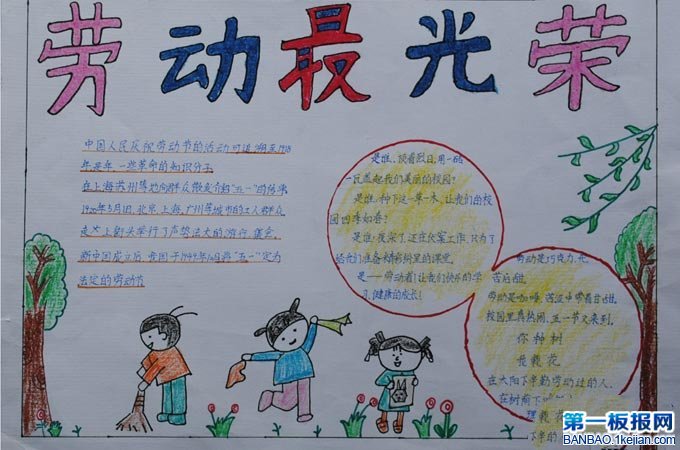 劳动最光荣
中国人民庆祝劳动节的活动可追溯至1918
年是年一些革命的知识分子
在上海苏州等地向群众散发介绍"五一"的传单
1920年5月1日,北京,上海,广州等城市的工人群众
走上街头举行了声势浩大的游行、集会.
新中国成立后,我国于1949年12月将"五一"定为
法定的劳动节
是谁、顶着烈日,用一砖
一瓦盖起我们美丽的校园?
是谁、种下这一草一木,让我们的校
园四季如春?
是谁,夜深了,还在伏案工作,只为了
给我们准备精彩的课堂.
是——劳动者!让我们快乐的学
习,健康的成长!
劳动是巧克力,先
苦后甜.
劳动是咖啡,苦涩中带着甘甜.
校园里真热闹,五一节又来到.
你种树
我栽花
在太阳下辛勤劳动过的人,
在树荫下
理栽花
下享的
第一板报网
BANBAO.1kejian.com